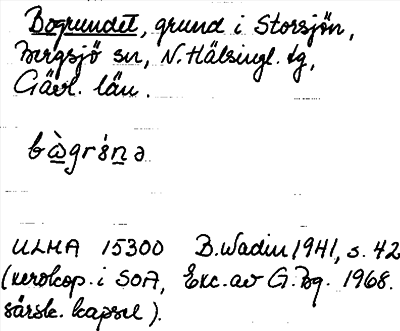 Bogrundet, grund i Storsjön,
Bergsjö sn, N. Hälsingl. tg,
Gävl. län.
ULMA 15300 B. Wadin 1941, s. 42
(xerokop. i SOA, Exc. av G. Bg. 1968.
särsk. kapsel).